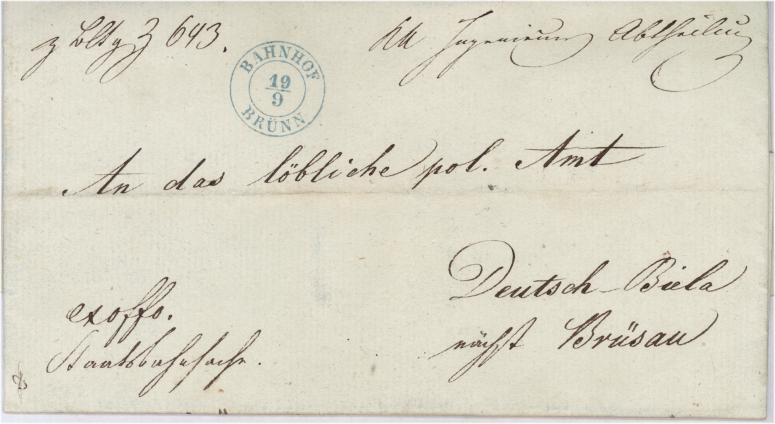 z Bldg Z 643.
KK Ingenieur Abtheilung
BAHNHOF
19
9
BRÜNN
An das löbliche pol. Amt
Deutsch-Biela
nächst Brüsau
exoffo.
Staatsbahnsache.